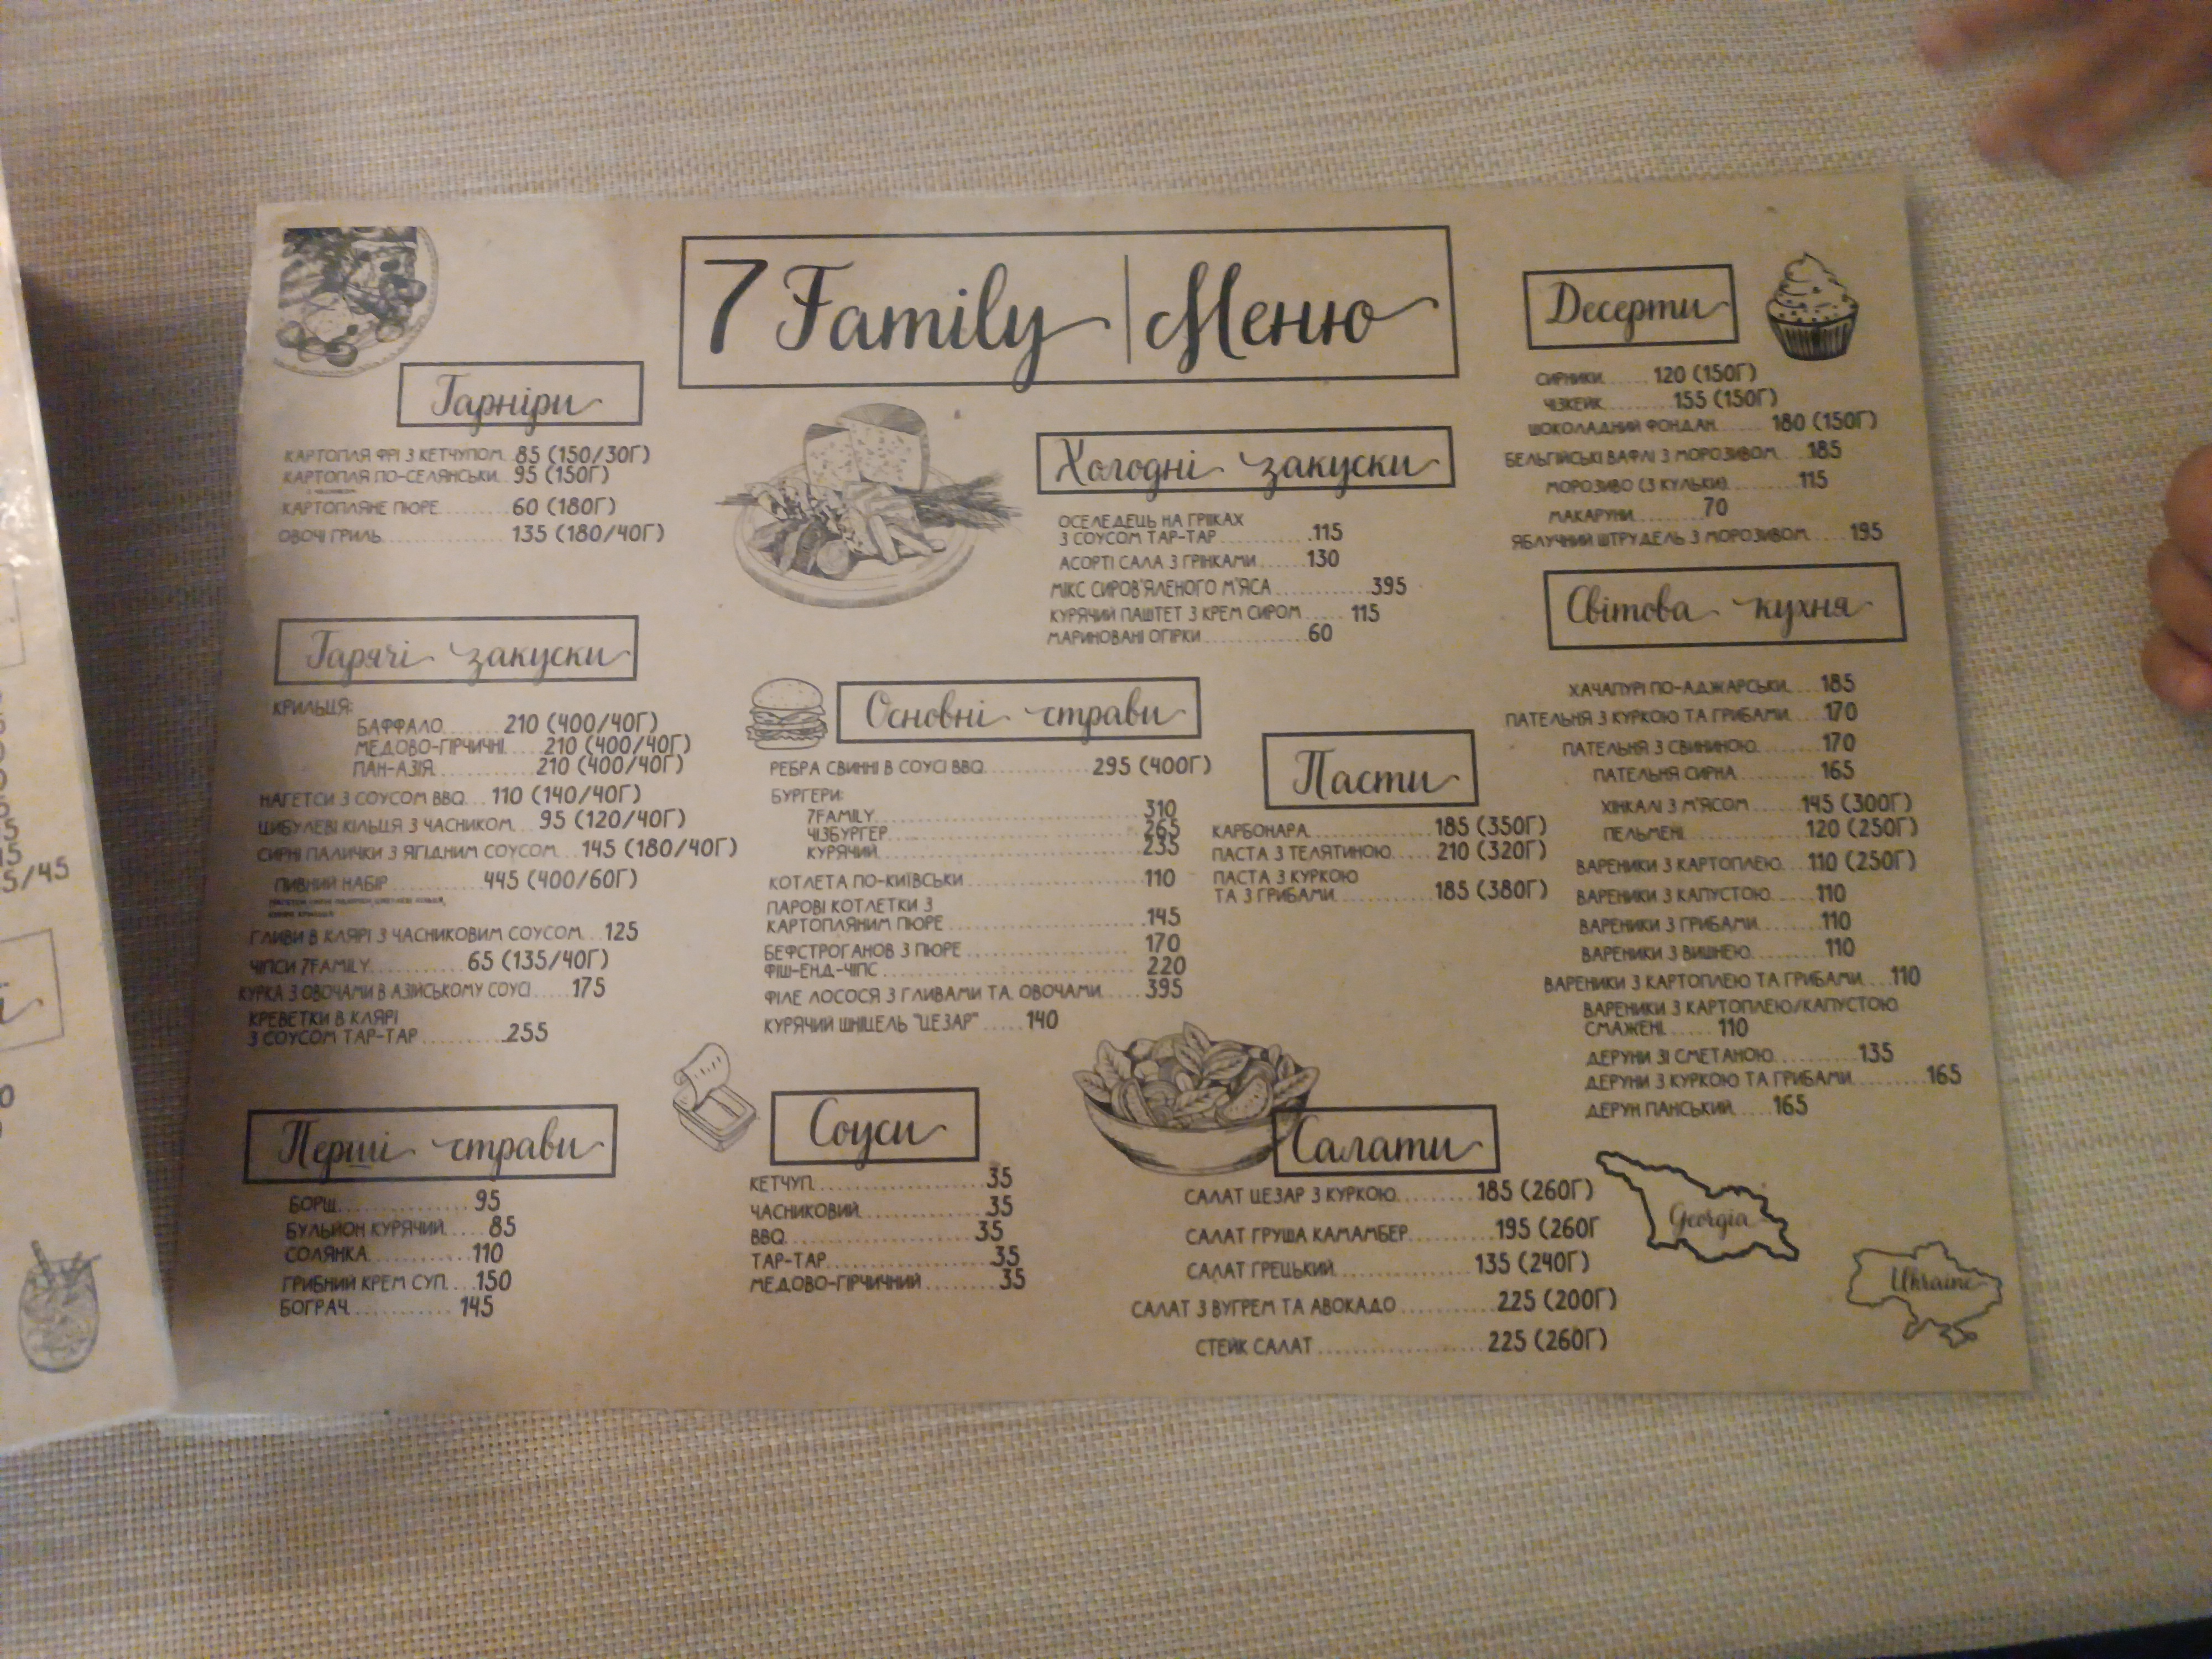 7 Family | Меню
Гарніри
КАРТОПЛЯ ФРІ З КЕТЧУПОМ...85 (150/30Г)
КАРТОПЛЯ ПО-СЕЛЯНСЬКИ...95 (150Г)
КАРТОПЛЯНЕ ПЮРЕ.........60 (180Г)
ОВОЧІ ГРИЛЬ................135 (180/40Г)
Гарячі закуски
КРИЛЬЦЯ:
БАФФАЛО........210 (400/40Г)
МЕДОВО-ГІРЧИЧНІ.....210 (400/40Г)
ПАН-АЗІЯ............210 (400/40Г)
НАГЕТСИ З СОУСОМ BBQ...110 (140/40Г)
ЦИБУЛЕВІ КІЛЬЦЯ З ЧАСНИКОМ...95 (120/40Г)
СИРНІ ПАЛИЧКИ З ЯГІДНИМ СОУСОМ...145 (180/40Г)
ПИВНИЙ НАБІР...........445 (400/60Г)
ГЛИВИ В КЛЯРІ З ЧАСНИКОВИМ СОУСОМ...125
ЧІПСИ 7FAMILY............65 (135/40Г)
КУРКА З ОВОЧАМИ В АЗІЙСЬКОМУ СОУСІ.....175
КРЕВЕТКИ В КЛЯРІ
З СОУСОМ ТАР-ТАР..........255
Перші страви
БОРЩ................95
БУЛЬЙОН КУРЯЧИЙ.....85
СОЛЯНКА............110
ГРИБНИЙ КРЕМ СУП...150
БОГРАЧ............145
Холодні закуски
ОСЕЛЕДЕЦЬ НА ГРІКАХ
З СОУСОМ ТАР-ТАР............115
АСОРТІ САЛА З ГРІНКАМИ......130
МІКС СИРОВ'ЯЛЕНОГО М'ЯСА............395
КУРЯЧИЙ ПАШТЕТ З КРЕМ СИРОМ.....115
МАРИНОВАНІ ОГІРКИ.............60
Основні страви
РЕБРА СВИННІ В СОУСІ BBQ..............295 (400Г)
БУРГЕРИ:
7FAMILY...................................310
ЧІЗБУРГЕР.................................265
КУРЯЧИЙ...................................235
КОТЛЕТА ПО-КИЇВСЬКИ.......................110
ПАРОВІ КОТЛЕТКИ З
КАРТОПЛЯНИМ ПЮРЕ..........................145
БЕФСТРОГАНОВ З ПЮРЕ.......................170
ФІШ-ЕНД-ЧІПС..............................220
ФІЛЕ ЛОСОСЯ З ГЛИВАМИ ТА ОВОЧАМИ.....395
КУРЯЧИЙ ШНІЦЕЛЬ "ЦЕЗАР".....140
Пасти
КАРБОНАРА...............185 (350Г)
ПАСТА З ТЕЛЯТИНОЮ.....210 (320Г)
ПАСТА З КУРКОЮ
ТА З ГРИБАМИ............185 (380Г)
Соуси
КЕТЧУП...................35
ЧАСНИКОВИЙ..............35
BBQ......................35
ТАР-ТАР..................35
МЕДОВО-ГІРЧИЧНИЙ.........35
Салати
САЛАТ ЦЕЗАР З КУРКОЮ.........185 (260Г)
САЛАТ ГРУША КАМАМБЕР..........195 (260Г
САЛАТ ГРЕЦЬКИЙ................135 (240Г)
САЛАТ З ВУГРЕМ ТА АВОКАДО...........225 (200Г)
СТЕЙК САЛАТ...................225 (260Г)
Десерти
СИРНИКИ......120 (150Г)
ЧІЗКЕЙК.........155 (150Г)
ШОКОЛАДНИЙ ФОНДАН.......180 (150Г)
БЕЛЬГІЙСЬКІ ВАФЛІ З МОРОЗИВОМ....185
МОРОЗИВО (3 КУЛЬКИ)..........115
МАКАРУНИ.........70
ЯБЛУЧНИЙ ШТРУДЕЛЬ З МОРОЗИВОМ.....195
Світова кухня
ХАЧАПУРІ ПО-АДЖАРСЬКИ....185
ПАТЕЛЬНЯ З КУРКОЮ ТА ГРИБАМИ....170
ПАТЕЛЬНЯ З СВИНИНОЮ.........170
ПАТЕЛЬНЯ СИРНА...........165
ХІНКАЛІ З М'ЯСОМ......145 (300Г)
ПЕЛЬМЕНІ................120 (250Г)
ВАРЕНИКИ З КАРТОПЛЕЮ...110 (250Г)
ВАРЕНИКИ З КАПУСТОЮ......110
ВАРЕНИКИ З ГРИБАМИ........110
ВАРЕНИКИ З ВИШНЕЮ.........110
ВАРЕНИКИ З КАРТОПЛЕЮ ТА ГРИБАМИ...110
ВАРЕНИКИ З КАРТОПЛЕЮ/КАПУСТОЮ
СМАЖЕНІ......110
ДЕРУНИ ЗІ СМЕТАНОЮ...........135
ДЕРУНИ З КУРКОЮ ТА ГРИБАМИ.........165
ДЕРУН ПАНСЬКИЙ.....165
Georgia
Ukraine